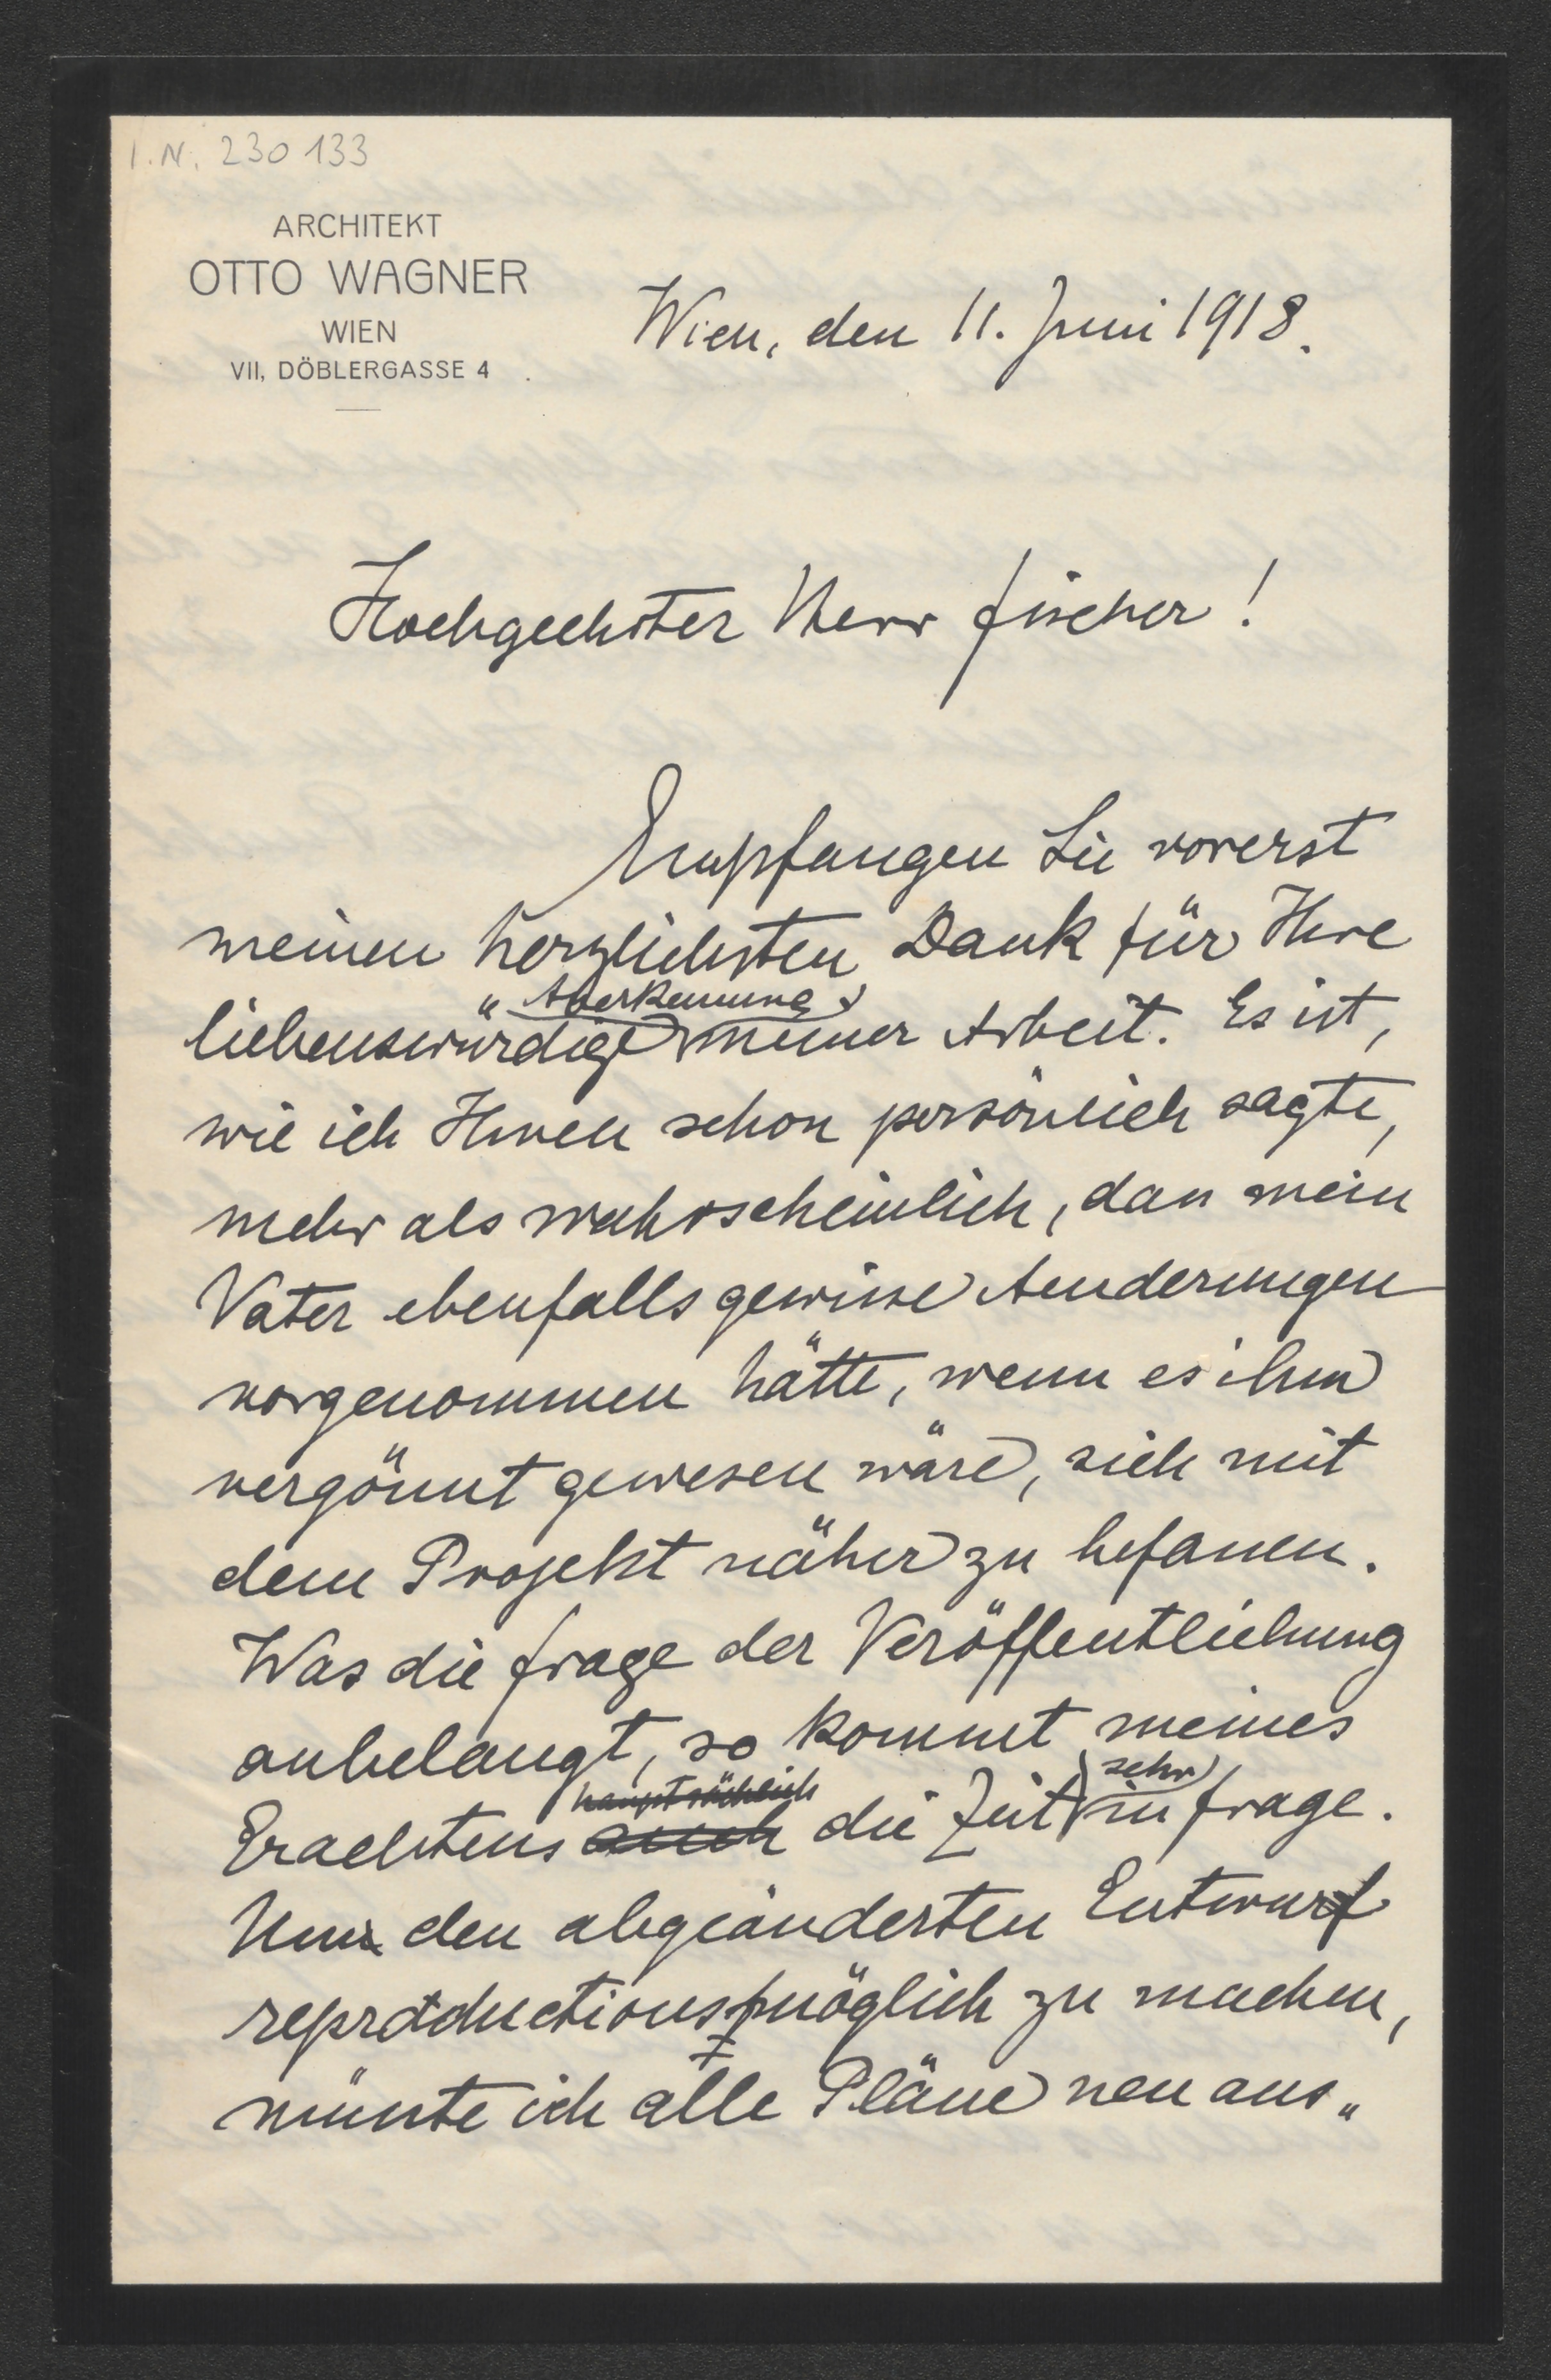 I.N. 230 133
ARCHITEKT
OTTO WAGNER
WIEN
VII, DÖBLERGASSE 4
Wien, den 11. Juni 1918.
Hochgeehrter Herr Fischer!
Empfangen Sie vorerst
meinen herzlichsten Dank für Ihre
Anerkennung
liebenswürdige meiner Arbeit. Es ist,
wie ich Ihnen schon persönlich sagte,
mehr als wahrscheinlich, dass mein
Vater ebenfalls gewisse Aenderungen
vorgenommen hätte, wenn es ihm
vergönnt gewesen wäre, sich mit
dem Projekt näher zu befassen.
Was die Frage der Veröffentlichung
anbelangt, so kommt meines
hauptsächlich sehr
Erachtens auch die Zeit in Frage.
Um den abgeänderten Entwurf
reproductionsmöglich zu machen,
müsste ich alle Pläne neu aus„